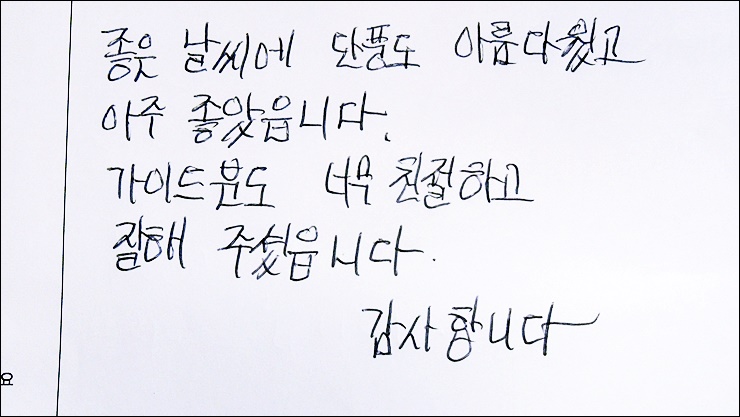 좋은 날씨에 단풍도 아름다웠고
아주 좋았읍니다.
가이드분도 너무 친절하고
잘해 주셨읍니다.
감사합니다
요